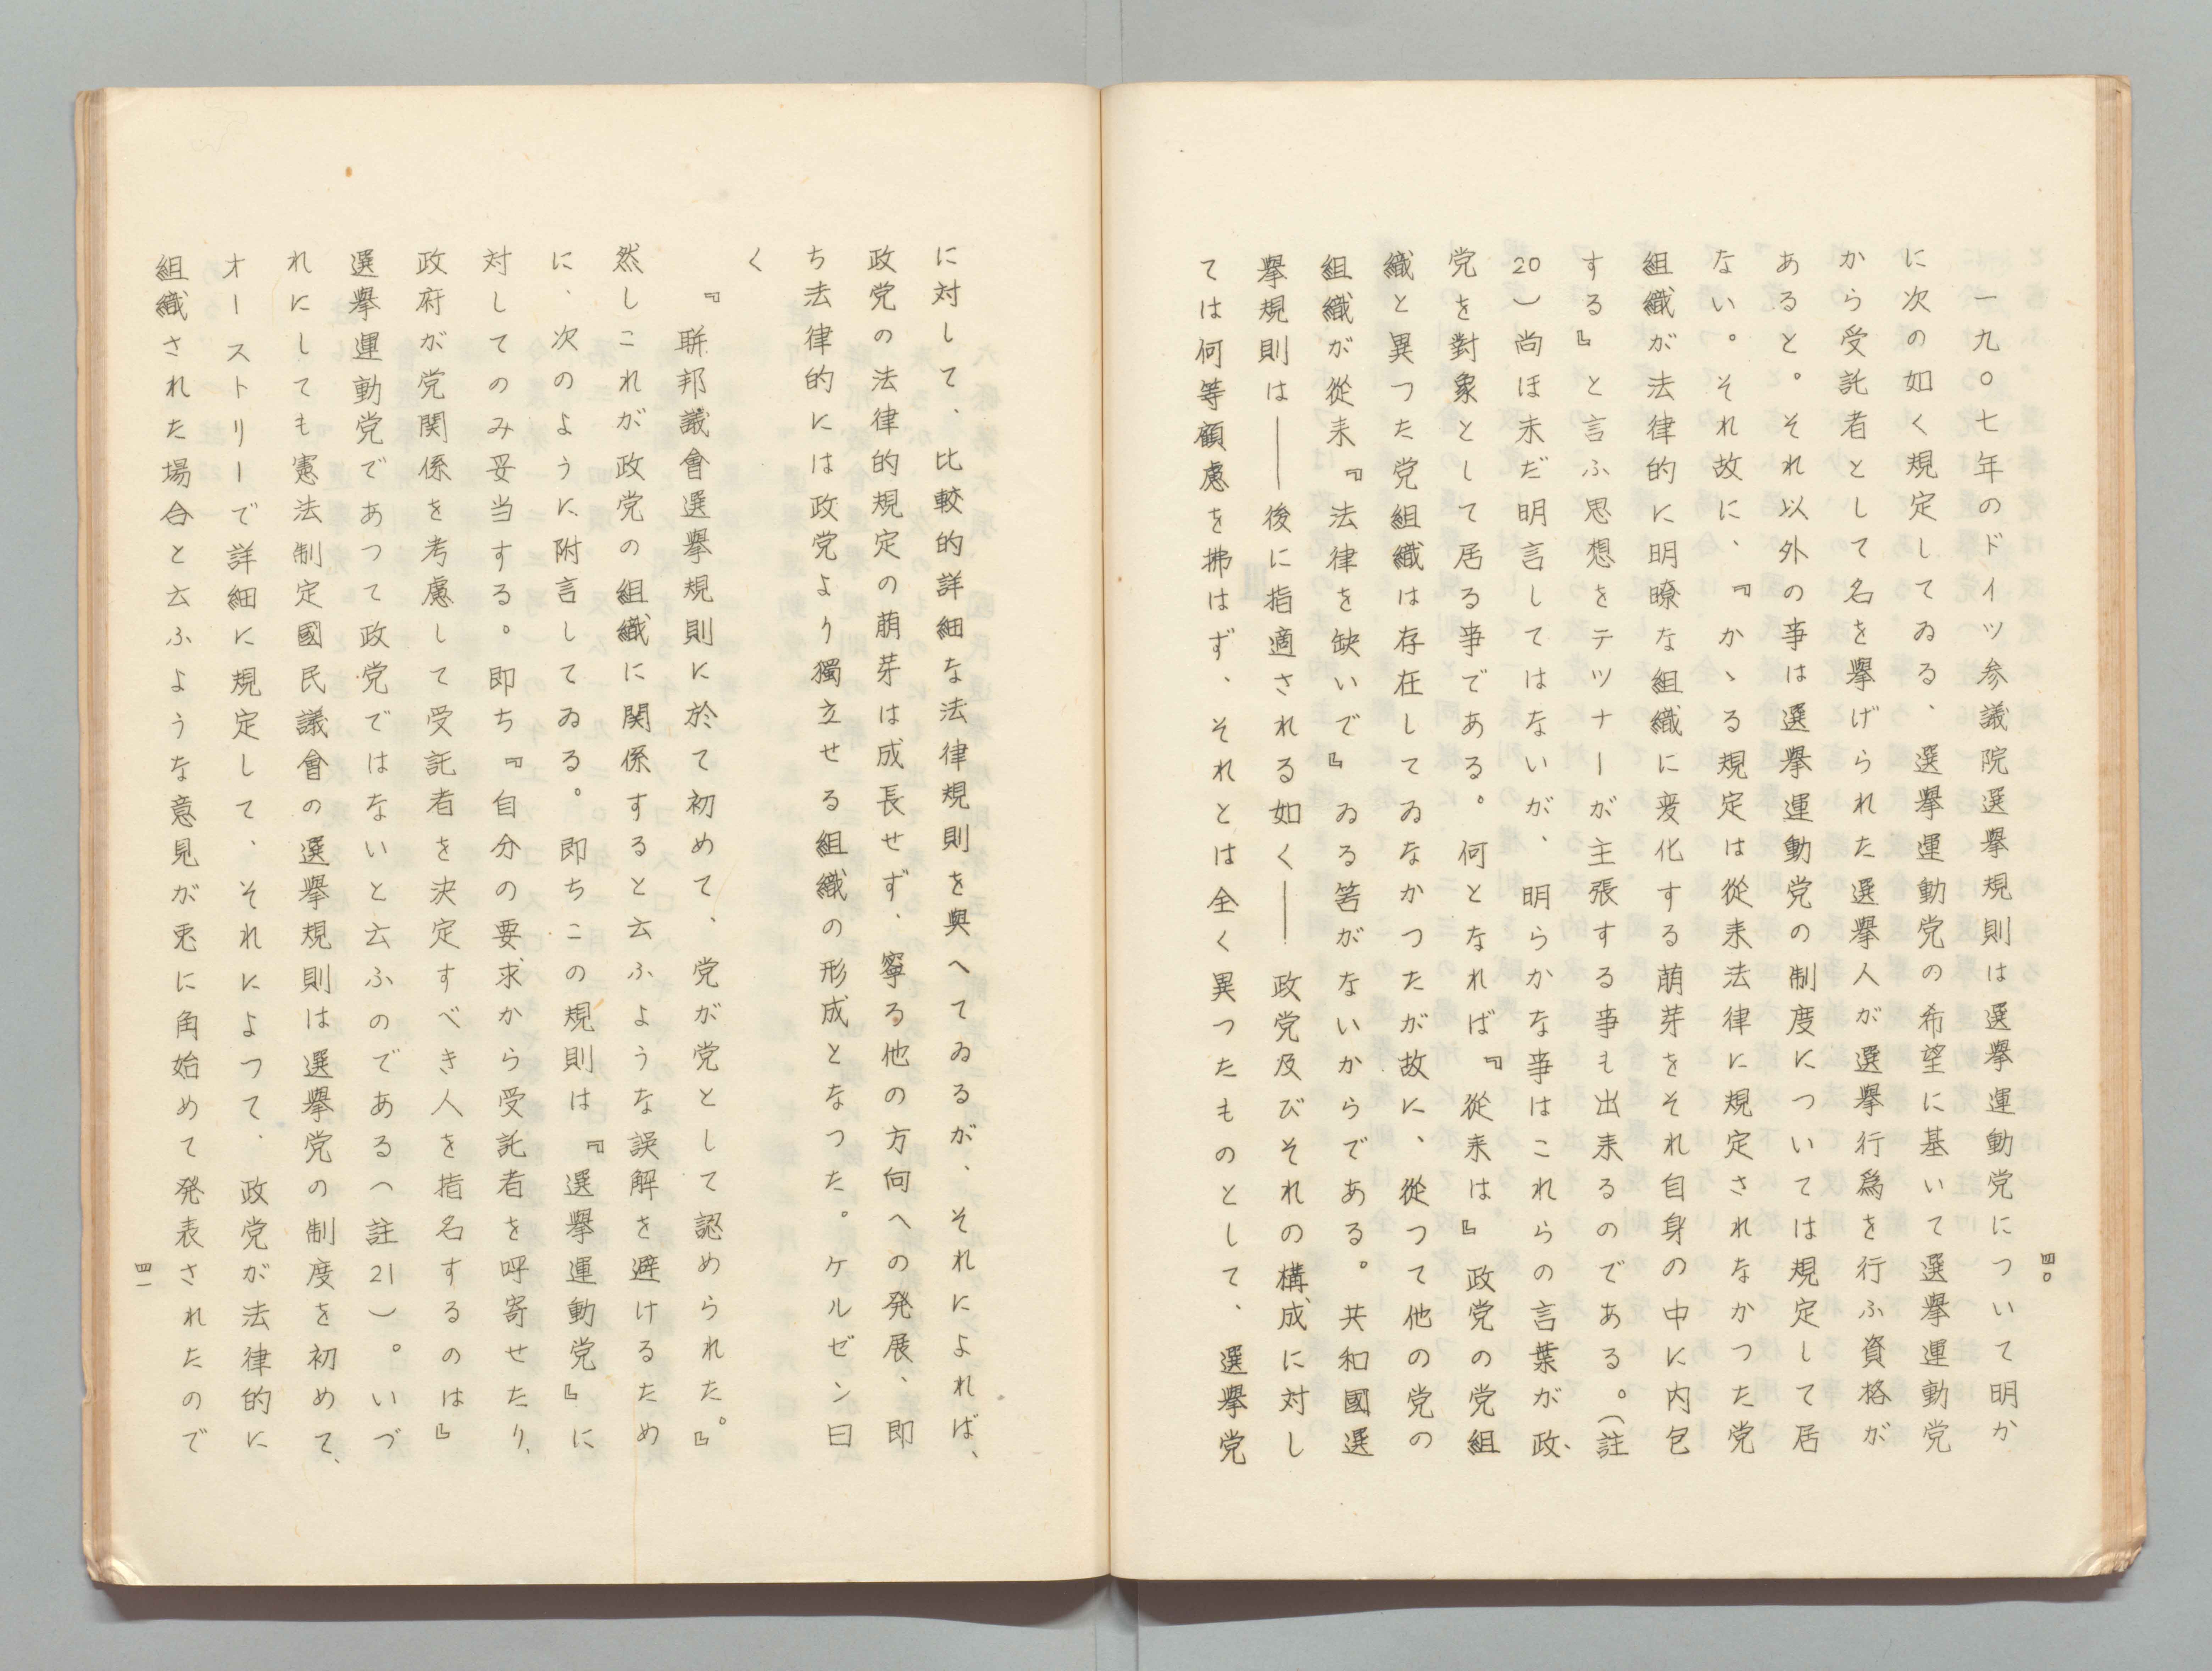 一九〇七年のドイツ参議院選擧規則は選擧運動党について明か
に次の如く規定してゐる、選擧運動党の希望に基いて選擧運動党
から受託者として名を擧げられた選擧人が選擧行爲を行ふ資格が
あると。それ以外の事は選擧運動党の制度については規定して居
ない。それ故に、『かゝる規定は從来法律に規定されなかつた党
組織が法律的に明瞭な組織に変化する萠芽をそれ自身の中に内包
する』と言ふ思想をテツナーが主張する事も出来るのである。(註
20)尚ほ未だ明言してはないが、明らかな事はこれらの言葉が政
党を對象として居る事である。何となれば『從来は』政党の党組
織と異つた党組織は存在してゐなかつたが故に、從つて他の党の
組織が從来『法律を缺いで』ゐる筈がないからである。共和國選
擧規則は――後に指適される如く――政党及びそれの構成に対し
ては何等顧慮を拂はず、それとは全く異つたものとして、選擧党
四〇
に対して、比較的詳細な法律規則を與へてゐるが、それによれば、
政党の法律的規定の萠芽は成長せず、寧る他の方向への発展、即
ち法律的には政党より獨立せる組織の形成となつた。ケルゼン曰
く
『聨邦議會選擧規則に於て初めて、党が党として認められた。』
然しこれが政党の組織に関係すると云ふような誤解を避けるため
に、次のように附言してゐる。即ちこの規則は『選擧運動党』に
対してのみ妥当する。即ち『自分の要求から受託者を呼寄せたり、
政府が党関係を考慮して受託者を決定すべき人を指名するのは』
選擧運動党であつて政党ではないと云ふのである(註21)。いづ
れにしても憲法制定國民議會の選擧規則は選擧党の制度を初めて、
オーストリーで詳細に規定して、それによつて、政党が法律的に
組織された場合と云ふような意見が兎に角始めて発表されたので
四一